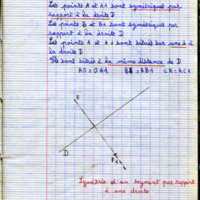 Les points A et A1 sont symétriques par
rapport à la droite D
Les points B et B1 sont symétriques par
rapport à la droite D
Les points A et A1 sont situés sur une ⊥ à
la droite D
Ils sont situés à la même distance de D
AO = OA1 BB = BB1 CR = RC1
D
Symétrie d'un segment par rapport
à une droite